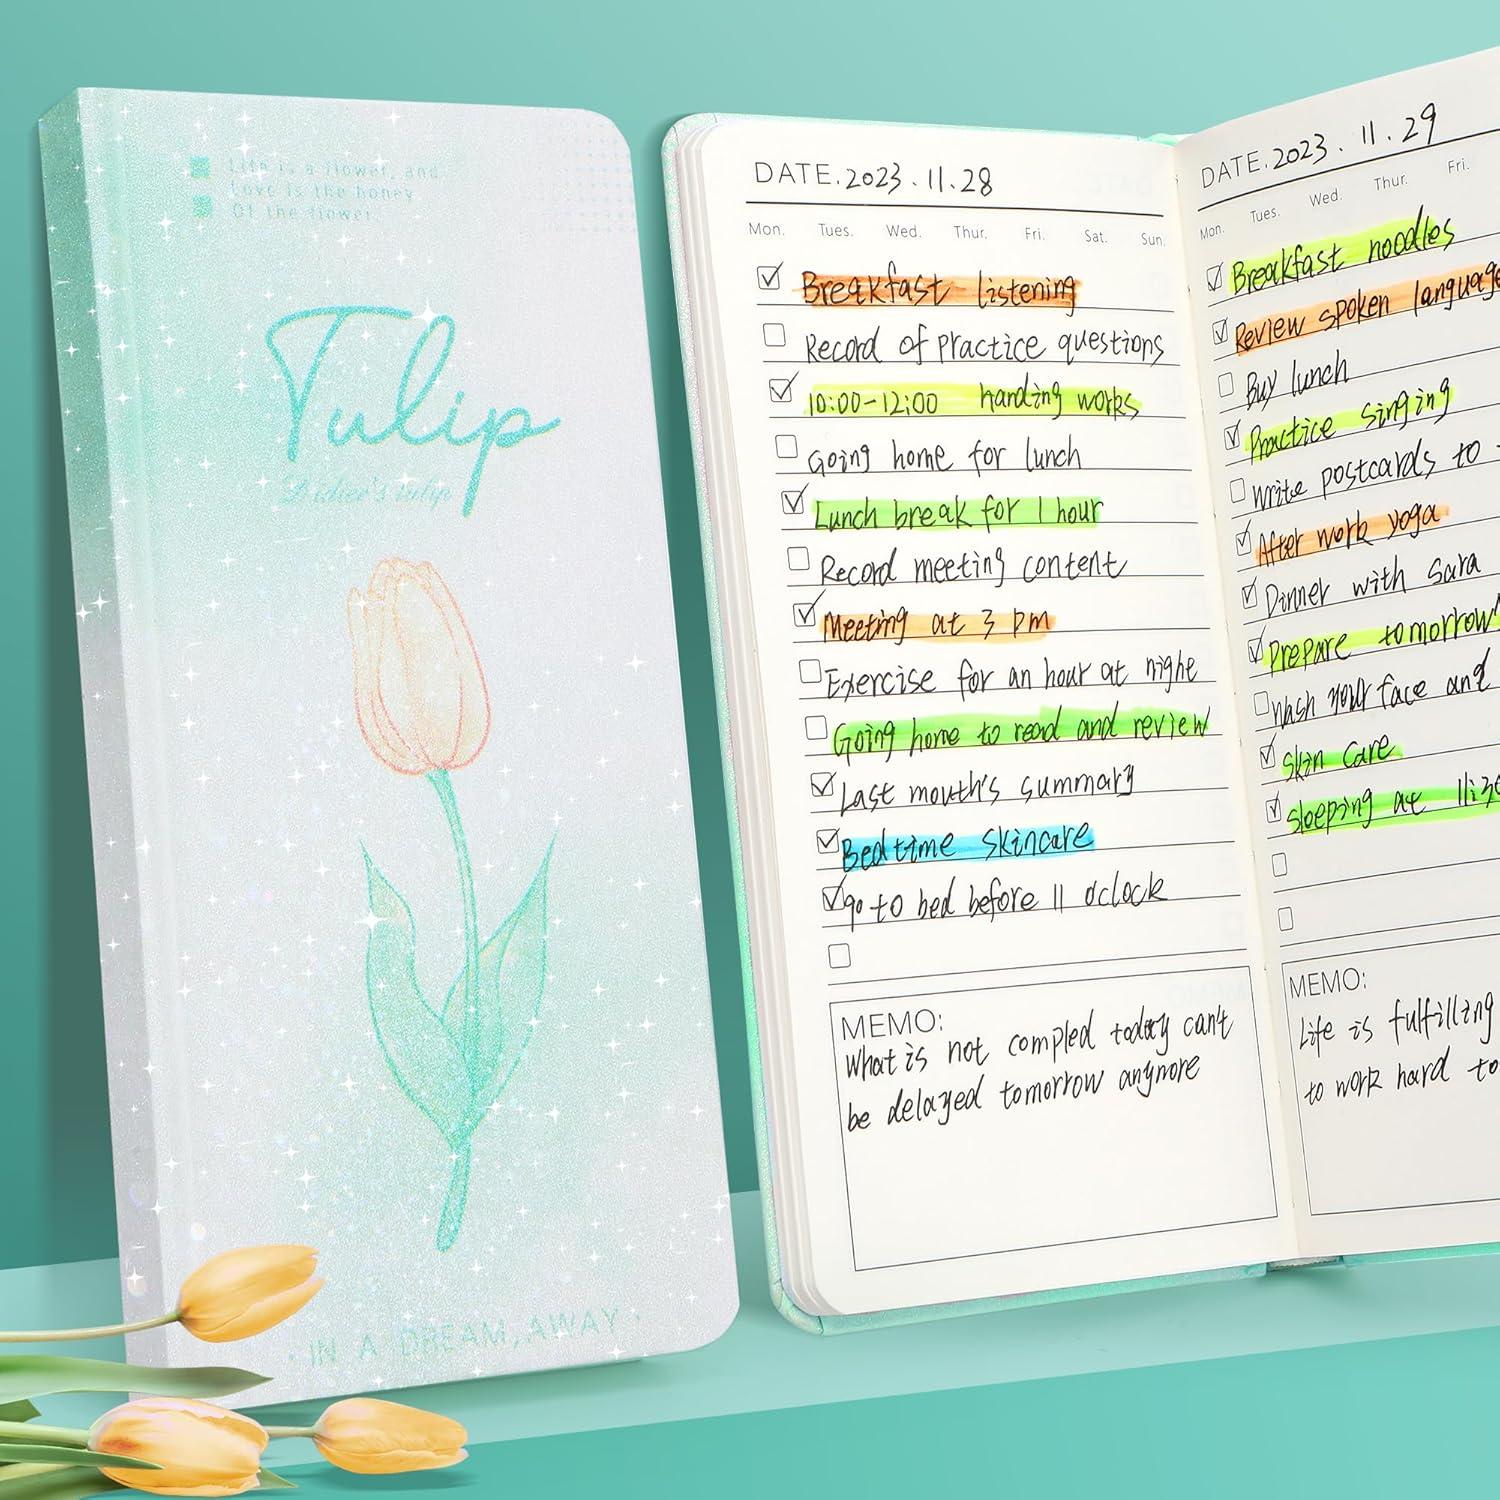 Life is a flower, and
Love is the honey
Of the flower.
Tulip
Didier's tulip
· IN A DREAM, AWAY ·
DATE. 2023.11.28
Mon. Tues. Wed. Thur. Fri. Sat. Sun.
Breakfast listening
Record of practice questions
10:00-12:00 handing works
Going home for lunch
Lunch break for 1 hour
Record meeting content
Meeting at 3 pm
Exercise for an hour at nighe
Going home to read and review
Last mouth's summary
Bedtime skincare
go to bed before 11 o'clock
MEMO:
What is not compled today can't
be delayed tomorrow anymore
DATE. 2023.11.29
Mon. Tues. Wed. Thur. Fri.
Breakfast noodles
Review spoken language
Buy lunch
Practice singing
Write postcards to
After work yoga
Dinner with Sara
Prepare tomorrow'
Wash your face and
Skin care
Sleeping at 11:30
MEMO:
Life is fulfilling
to work hard to